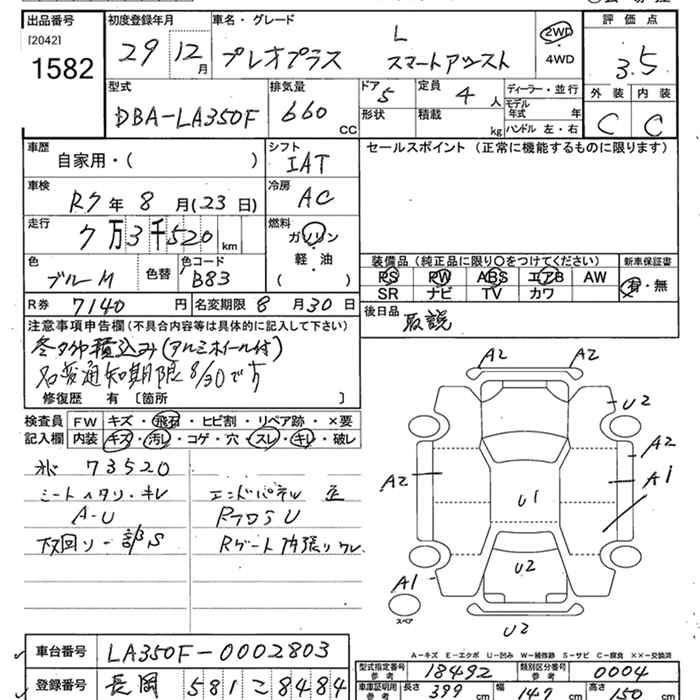 出品番号 初度登録年月 車名・グレード 評価点
[2042] 1582
29 12月 プレオプラス L スマートアシスト 2WD・4WD 3.5
型式 排気量 ドア 定員 ディーラー・並行 外装 内装
DBA-LA350F 660 CC 5 4人 モデル年式 年 C C
形状 積載 kg ハンドル 左・右
車歴 シフト セールスポイント(正常に機能するものに限ります)
自家用・( ) IAT
車検 冷房
R7年 8月(23日) AC
走行 燃料
7万3千520km ガソリン・軽・油 ( )
色 色替 色コード
ブルーM B83
装備品(純正品に限り〇をつけてください) 新車保証書
PS PW ABS エアB AW 有・無
SR ナビ TV カワ
R券 7140円 名変期限 8月30日
後日品 取説
注意事項申告欄(不具合内容等は具体的に記入して下さい)
冬タイヤ積込み(アルミホイール付)
名変通知期限8/30です
修復歴 有〔箇所 〕
検査員記入欄 FW キズ・飛石・ヒビ割・リペア跡・×要
内装 キズ・汚し・コゲ・穴・スレ・キレ・破レ
A2 A2
U2
A2
A2 A1
U1
U2
A1
スペア
U2
73520
シートヘタリ・キレ エンドパネル
A-U
下回り一部S
A-キズ E-エクボ U-凹み W-補修跡 S-サビ C-腐食 XX-交換済
車台番号 LA350F-0002803
型式指定番号 参考 18492 類別区分番号 参考 0004
登録番号 長岡 581 こ 8484
車庫証明用 参考 長さ 399 cm 幅 147 cm 高さ 150 cm